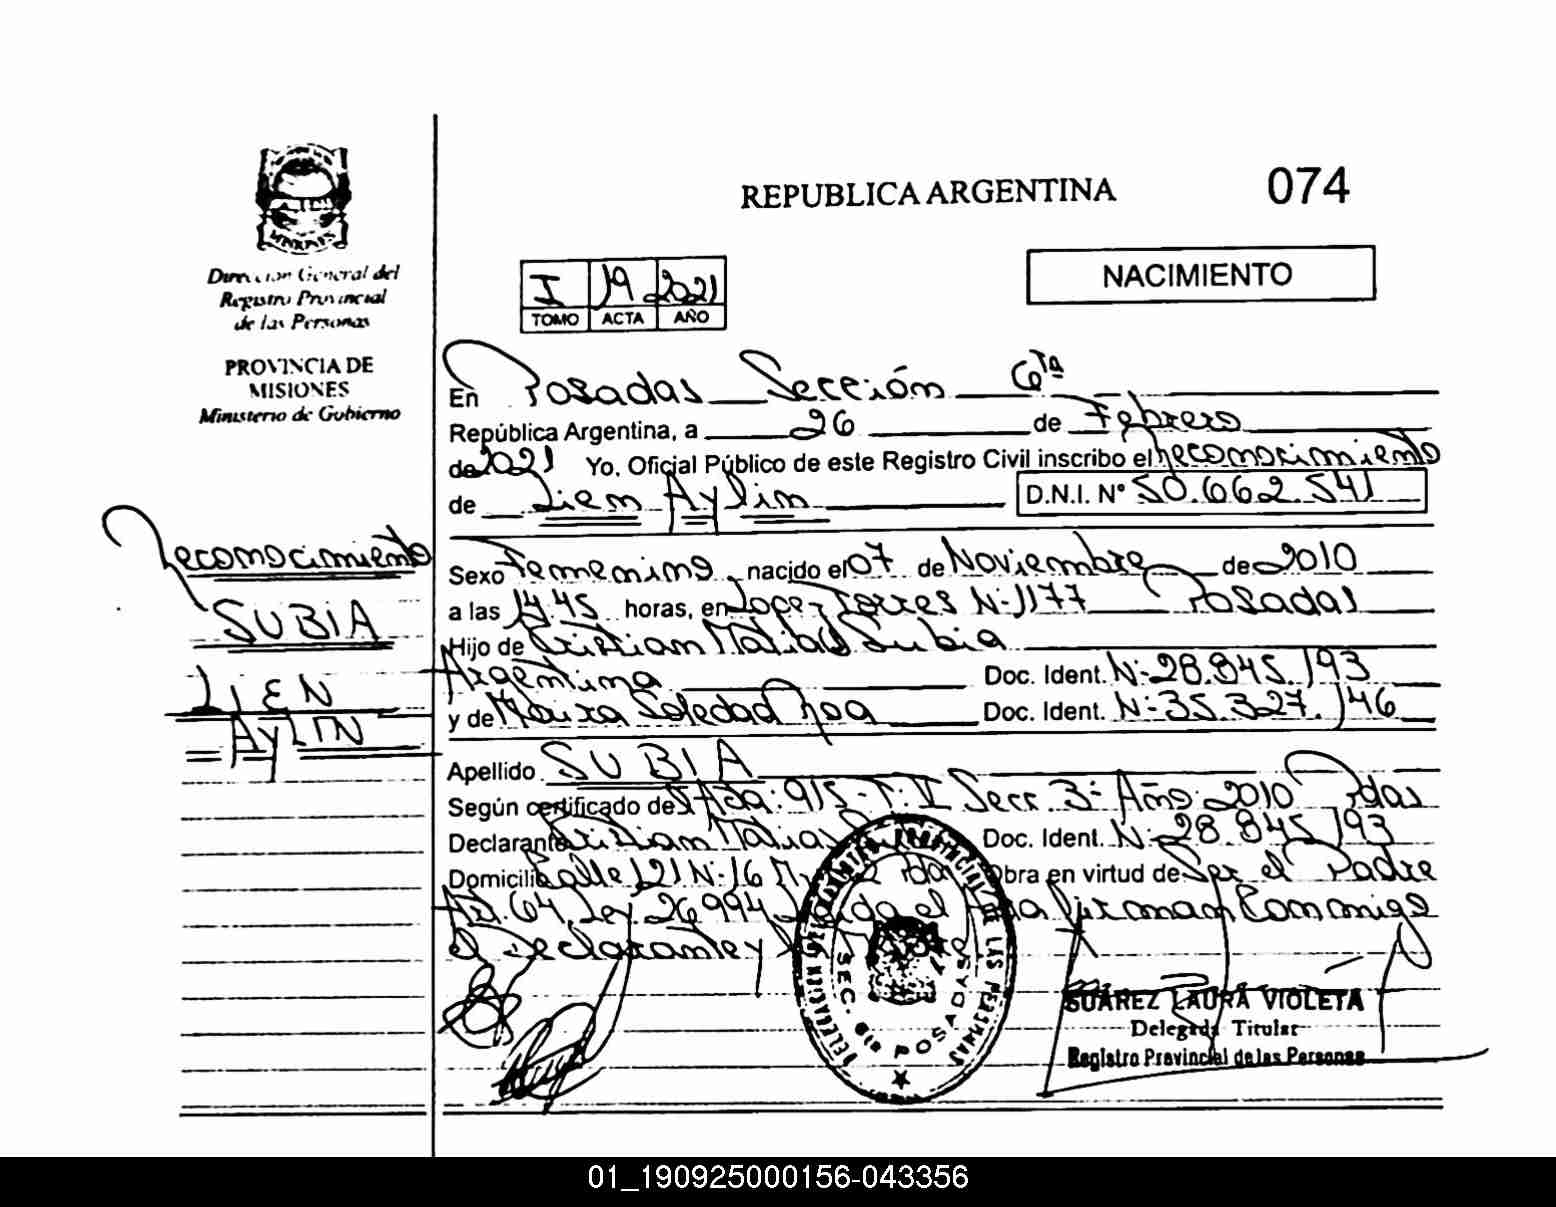 REPUBLICA ARGENTINA
074
Dirección General del
Registro Provincial
de las Personas
PROVINCIA DE
MISIONES
Ministerio de Gobierno
NACIMIENTO
I 19 2021
TOMO ACTA AÑO
En Posadas Sección 6ta
República Argentina, a 26 de Febrero
de 2021 Yo, Oficial Público de este Registro Civil inscribo el Reconocimiento
de Lien Aylin D.N.I. Nº 50.662.541
Reconocimiento
SUBIA
LIEN
AYLIN
Sexo Femenino nacido el 07 de Noviembre de 2010
a las 14.45 horas, en Lopez Torres N-1177 Posadas
Hijo de Cristian Matias Subia
Argentina Doc. Ident. N-28.845.193
y de Maira Soledad Roa Doc. Ident. N-35.327.146
Apellido SUBIA
Según certificado de Acta: 915-T.I Secc 3ª Año 2010 Pdas
Declarante Cristian Matias Doc. Ident. N-28.845.193
Domicilio Calle 121 N-16 Pdas Obra en virtud de Ser el Padre
Art. 64 Ley 26994 el firman conmigo
el Declarante y
DELEGACION PROVINCIAL DE LAS PERSONAS
SEC. 6ta POSADAS
SUAREZ LAURA VIOLETA
Delegada Titular
Registro Provincial de las Personas
01_190925000156-043356